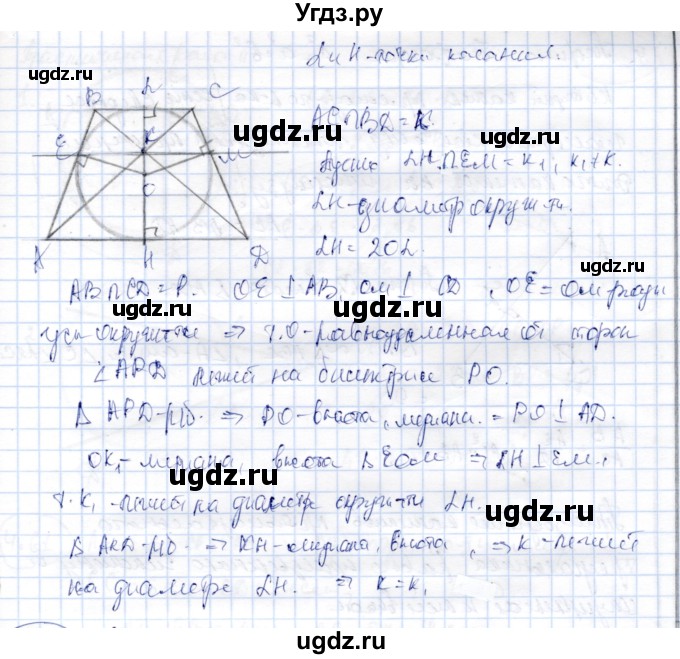 Угдз.ру
L и H - точки касания.
AC∩BD = K
Пусть LH∩EM = K₁, K₁≠K.
LH - диаметр окружн.
LH = 2OL.
B L C
E K M
O
A H D
AB∩CD = P. OE⊥AB OM⊥CD, OE = OM радиу
сы окружн ⇒ т.O - равноудаленная от сторон
∠APD лежит на биссектрисе PO.
Δ APD - р/б. ⇒ PO - высота, медиана. = PO⊥AD.
OK₁ - медиана, высота Δ EOM ⇒ LH⊥EM.
т. K₁ - лежит на диаметре окружн LH.
Δ AKD - р/б. ⇒ KH - медиана, высота, ⇒ K - лежит
на диаметре LH. ⇒ K = K₁
ugdz.ru
ugdz.ru
ugdz.ru
ugdz.ru
ugdz.ru
ugdz.ru
ugdz.ru
ugdz.ru
ugdz.ru
ugdz.ru
ugdz.ru